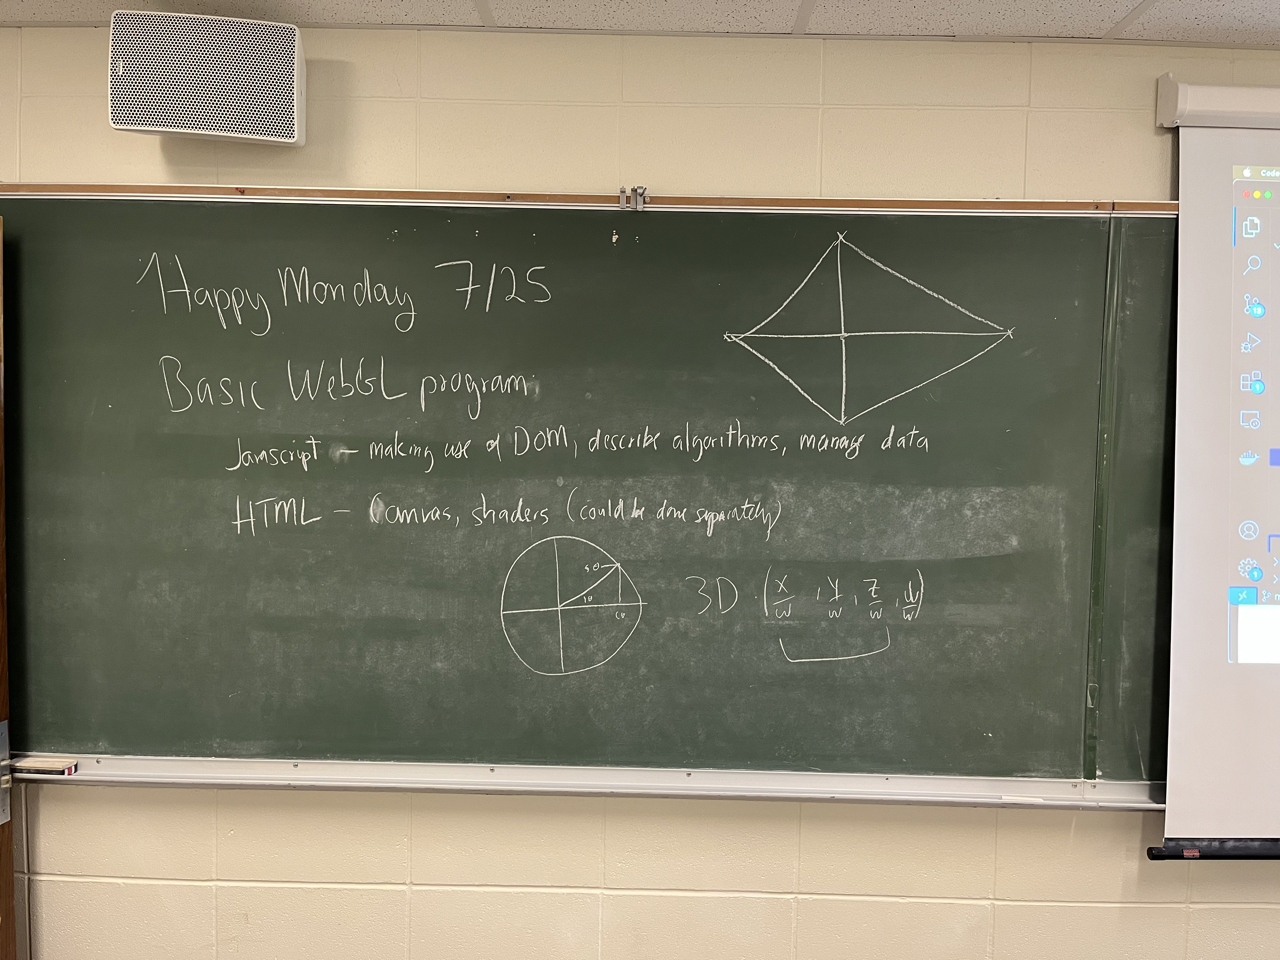 Happy Monday 7/25
Basic WebGL program:
Javascript - making use of DOM, describe algorithms, manage data
HTML - Canvas, shaders (could be done separately)
sθ
θ
cθ
3D (x/w, y/w, z/w, w/w)
Code
13
1
1